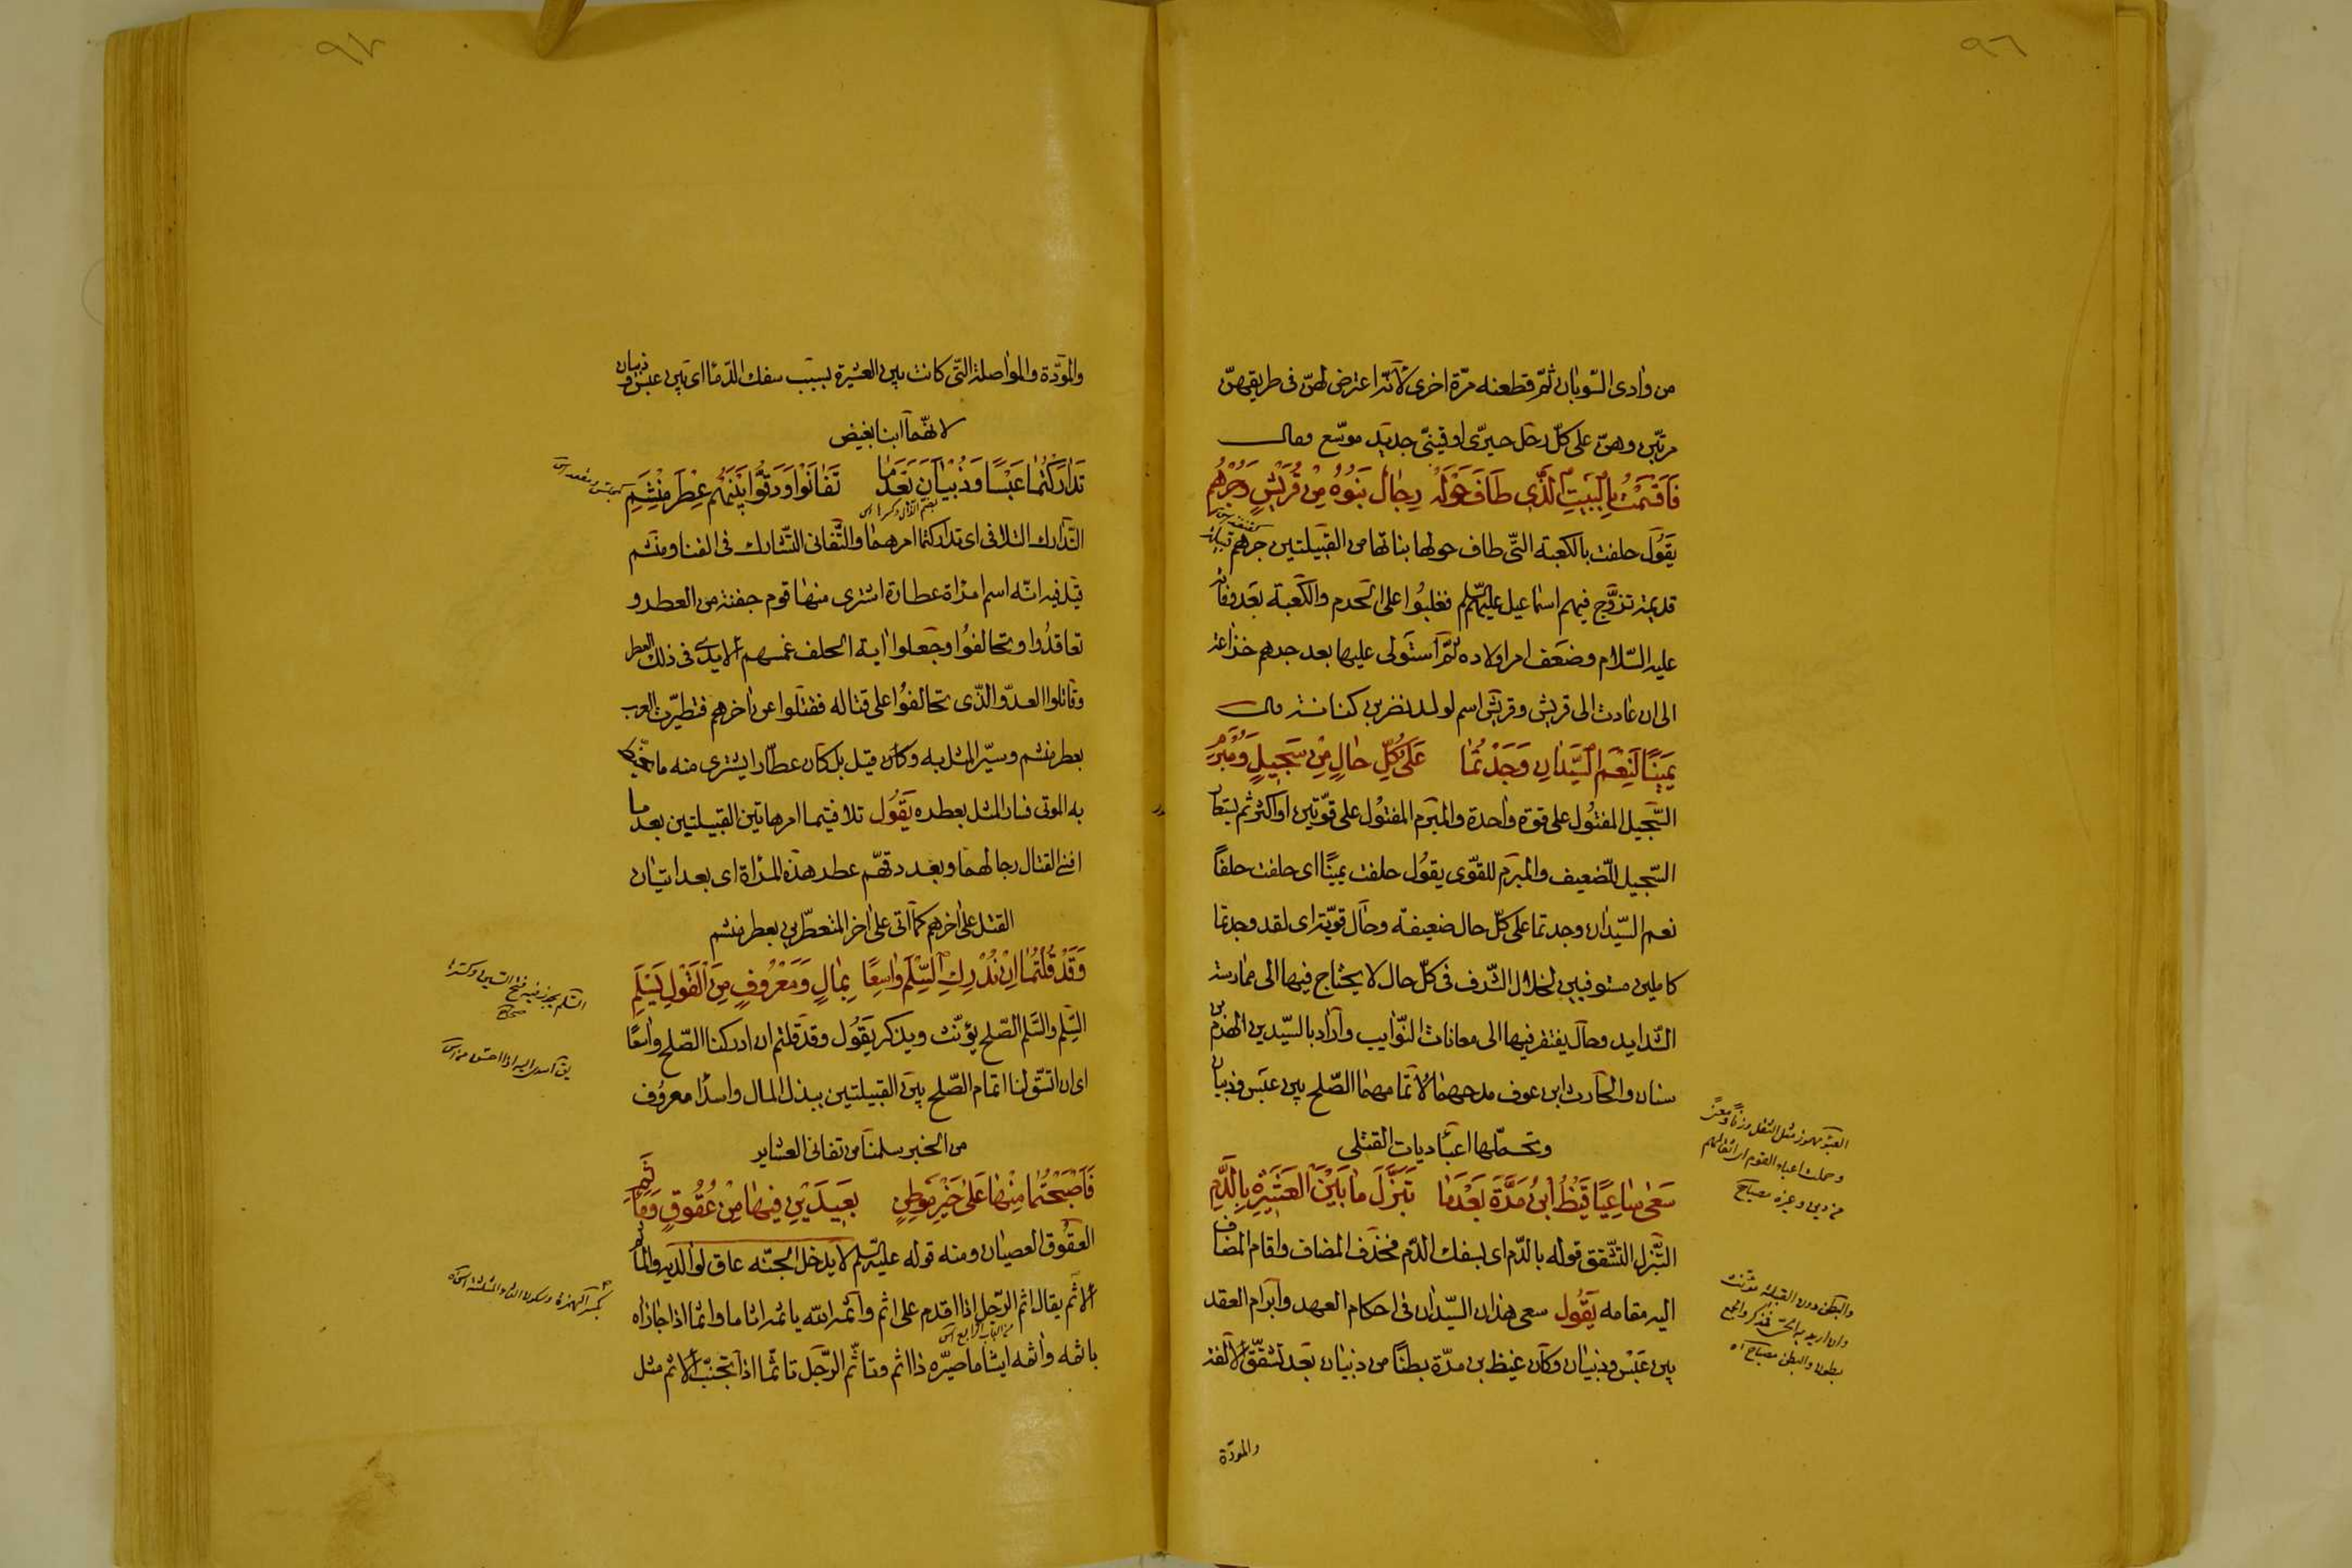 ٩٦
من وادى السّوبان ثمّ قطعنه مرّة اخرى لانّه اعترض لهنّ فى طريقهنّ
مرتين وهنّ على كلّ رحل حيرىّ او قينىّ جديد موسّع وقال
فَاَقْسَمْتُ بِالْبَيْتِ الَّذِى طَافَ حَوْلَهُ رِجَالٌ بَنَوْهُ مِنْ قُرَيْشٍ وَجُرْهُمِ
يَقُول حلفت بالكعبة التّى طاف حولها بناتها من القبيلتين جرهم قبيلة
قديمة تزوّج فيهم اسماعيل عليه السّلم فغلبوا على الحرم والكعبة بعد وفاته
عليه السّلام وضعف امر اولاده ثمّ استولى عليها بعد جرهم خزاعة
الى ان عادت الى قريش وقريش اسم لولد نضر بن كنانة قال
يَمِينًا لَنِعْمَ السَّيِّدَانِ وُجِدْتُمَا عَلَى كُلِّ حَالٍ مِنْ سَحِيلٍ وَمُبْرَمِ
السّحيل المفتول على قوة واحدة والمبرم المفتول على قوّتين او اكثر ثم يستعار
السّحيل للضّعيف والمبرم للقوّى يقول حلفت يمينًا اى حلفت حلفًا
نعم السيّدان وجدتما على كلّ حال ضعيفة وحال قويّة اى لقد وجدتما
كاملين مستوفيين لخلال الشّرف فى كلّ حال لا يحتاج فيها الى ممارسة
الشّدايد وحال يفتقر فيها الى معانات النّوايب واراد بالسيّدين الهرم بن
سنان والحارث ابن عوف مدحهما لاتمامهما الصّلح بين عبس وذبيان
وتحمّلهما اعباء ديات القتلى
سَعَى سَاعِيًا غَيْظُ ابْنُ مُرَّةَ بَعْدَمَا تَبَزَّلَ مَا بَيْنَ الْعَشِيرَةِ بِالدَّمِ
التّبزل التشّقق قوله بالدّم اى بسفك الدّم فحذف المضاف واقام المضاف
اليه مقامه يَقُول سعى هذان السيّدان فى احكام العهد وابرام العقد
بين عبس وذبيان وكان غيظ بن مرّة بطنًا من ذبيان بعد تشقّق الالفة
والمودّة
العبؤ مهموز مثل الثقل وزنًا ومعنًى
وحملت اعباء القوم اى اثقالهم
من دين وغيره مصباح
والبطن دون القبيلة مؤنث
وان اريد به الحىّ فمذكر والجمع
بطون وابطن مصباح اه
٩٧
والمودّة والمواصلة التّى كانت بين العشيرة بسبب سفك الدّماء اى بين عبس وذبيان
لانّهما ابنا بغيض
تَدَارَكْتُمَا عَبْسًا وَذُبْيَانَ بَعْدَمَا تَفَانَوْا وَدَقُّوا بَيْنَهُمْ عِطْرَ مَنْشِمِ
التّدارك التلافى اى تداركتما امرهما والتّفانى التّشارك فى الفنا ومنشم
قيل فيه انّه اسم امرأة عطارة اشترى منها قوم جفنة من العطر و
تعاقدوا وتحالفوا وجعلوا اية الحلف غمسهم الايدى فى ذلك العطر
وقاتلوا العدوّ الذّى تحالفوا على قتاله فقتلوا عن اخرهم فتطيّرت العرب
بعطر منشم وسيّر المثل به وكان قيل بل كان عطّارا يشترى منه ما يحنّط
به الموتى فسار المثل بعطره يَقُول تلافيتما امر هاتين القبيلتين بعد ما
افنى القتال رجالهما وبعد دقّهم عطر هذه المرأة اى بعد اتيان
القتل على اخرهم كما اتى على اخر المتعطّرين بعطر منشم
وَقَدْ قُلْتُمَا اِنْ نُدْرِكِ السِّلْمَ وَاسِعًا بِمَالٍ وَمَعْرُوفٍ مِنَ الْقَوْلِ نَسْلَمِ
السّلم والسّلم الصّلح يؤنّث ويذكر يَقُول وقد قلتم ان ادركنا الصّلح واسعًا
اى ان اتسّق لنا اتمام الصّلح بين القبيلتين ببذل المال واسدا معروف
من الخير سلمنا من تفانى العشاير
فَاَصْبَحْتُمَا مِنْهَا عَلَى خَيْرِ مَوْطِنٍ بَعِيدَيْنِ فِيهَا مِنْ عُقُوقٍ وَمَأْثَمِ
العقوق العصيان ومنه قوله عليه السّلم لا يدخل الجنّة عاق لوالديه والمأثم
الاثم يقال اثم الرّجل اذا اقدم على اثم واثمه اللّه ياثمه اثاما واثما اذا جازاه
باثمه واثمه ايثاما صيّره ذا اثم وتاثّم الرّجل تاثّما اذا تجنّب الاثم مثل
السّلم يجوز فيه فتح السّين وكسرها
يق اسدى اليه اذا احسن
بكسر الهمزة وسكون الثاء المثلثة
من الباب الرابع